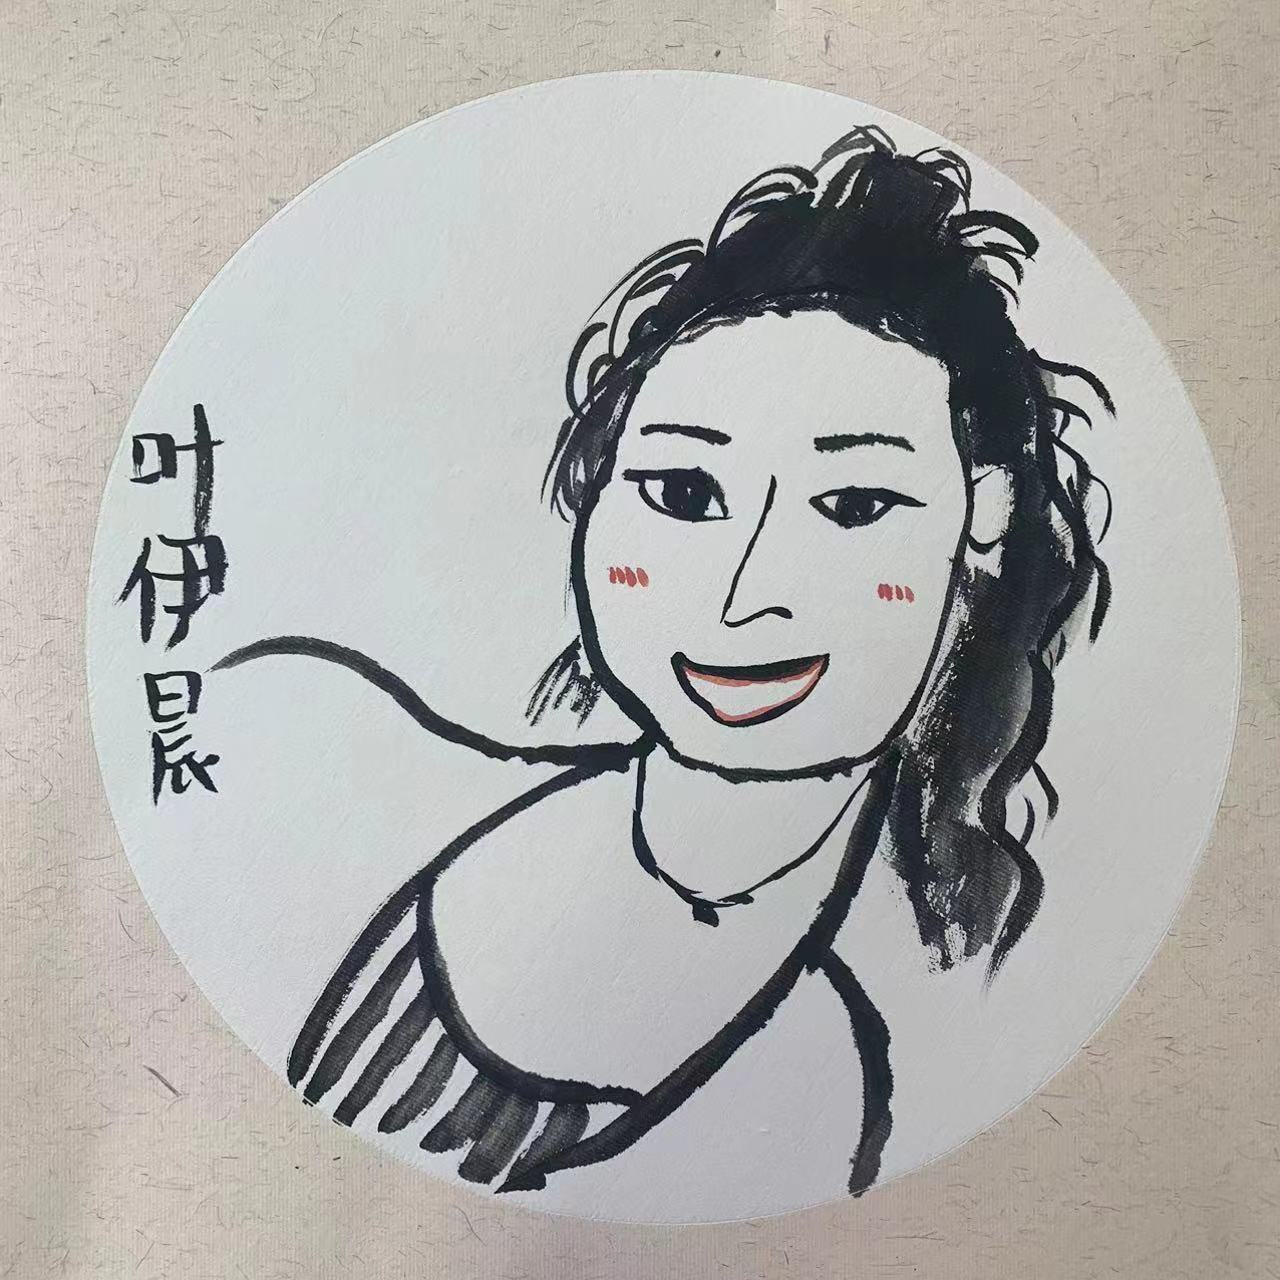 叶伊晨